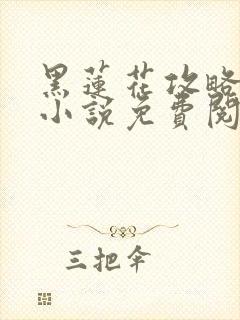 黑蓮花攻略
小說免費閱
三把伞